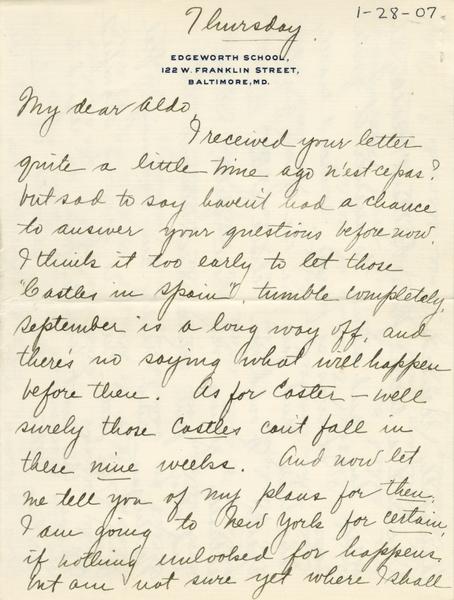 Thursday.
1-28-07
EDGEWORTH SCHOOL,
122 W. FRANKLIN STREET,
BALTIMORE, MD.
My dear Aldo,
I received your letter
quite a little time ago n'est ce pas?
but sad to say haven't had a chance
to answer your questions before now.
I think it too early to let those
"Castles in Spain", tumble completely,
September is a long way off, and
there's no saying what will happen
before then. As for Easter — well
surely those Castles can't fall in
these nine weeks. And now let
me tell you of my plans for then.
I am going to New York for certain,
if nothing unlooked for happens,
but am not sure yet where I shall